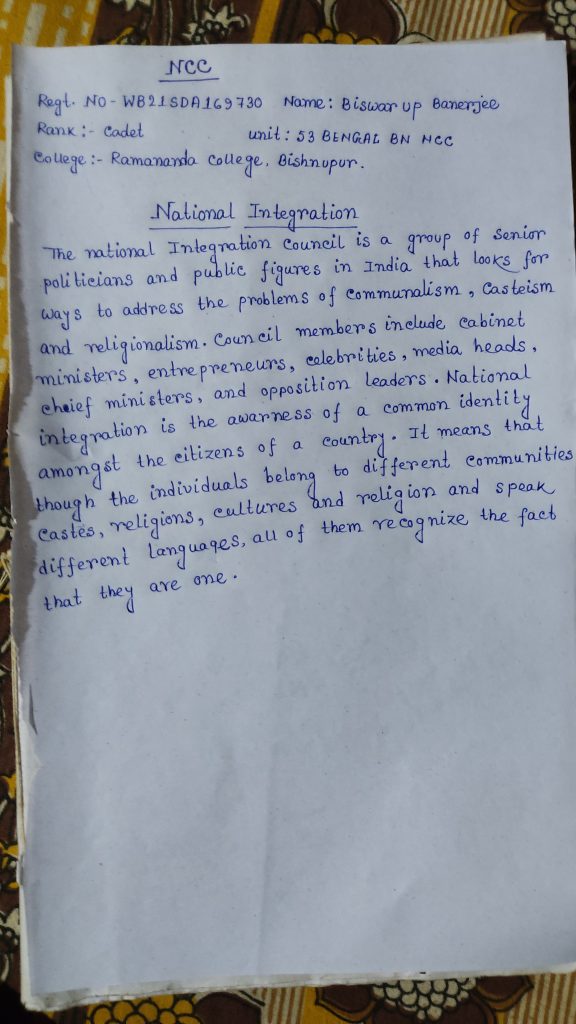 NCC
Regt. No - WB21SDA169730 Name: Biswarup Banerjee
Rank :- Cadet unit : 53 BENGAL BN NCC
College :- Ramananda College, Bishnupur.
National Integration
The national Integration Council is a group of senior
politicians and public figures in India that looks for
ways to address the problems of communalism, Casteism
and religionalism. Council members include cabinet
ministers, entrepreneurs, celebrities, media heads,
cheief ministers, and opposition leaders. National
integration is the awarness of a common identity
amongst the citizens of a country. It means that
though the individuals belong to different communities
castes, religions, cultures and religion and speak
different languages, all of them recognize the fact
that they are one.